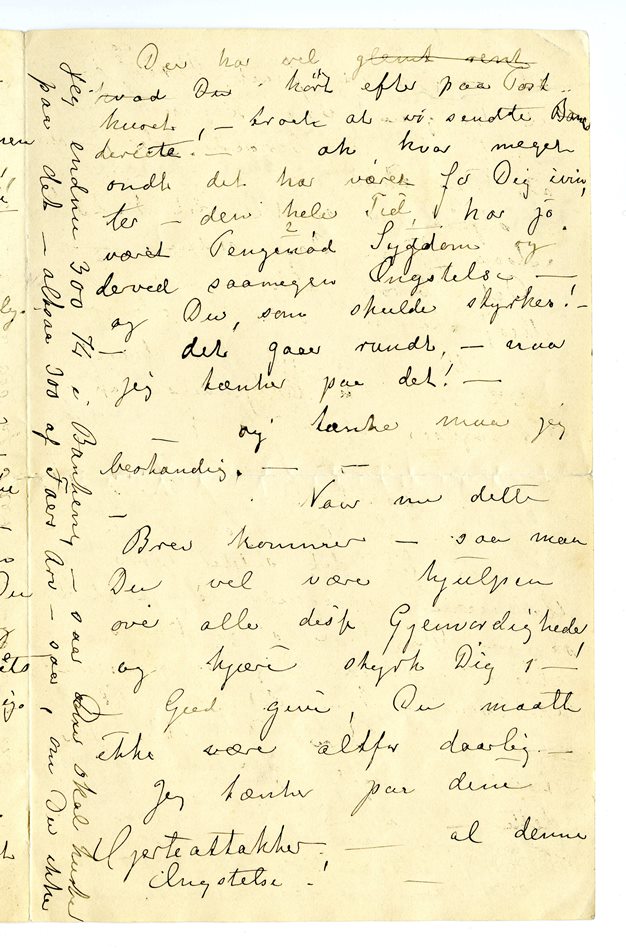 Du har vel glemt rent
hvad Du hørt efter paa Post-
huset, — troet at vi sendte
derefter. — ak hvor meget
ondt det har været for Dig ivin,
ter — den hele Tid, har jo
været Pengenød Sygdom og
derved saamegen Ængstelse —
og Du, som skulde styrkes! —
— det gaar rundt, — naar
jeg tænker paa det! —
— og tænke maa jeg
bestandig. — —
— Naar nu dette
Brev kommer — saa maa
Du vel være hjulpen
over alle disse Gjenvordigheder
og kjære styrk Dig, —!
Gud give, Du maatte
ikke være altfor daarlig. —
Jeg tænker paa dine
Hjerteattakker. — al denne
Ængstelse! —
Jeg endnu 300 Kr i Bankerne, — saa Du skal huske
paa det — altsaa 300 af Faers Arv — saa, om Du ikke